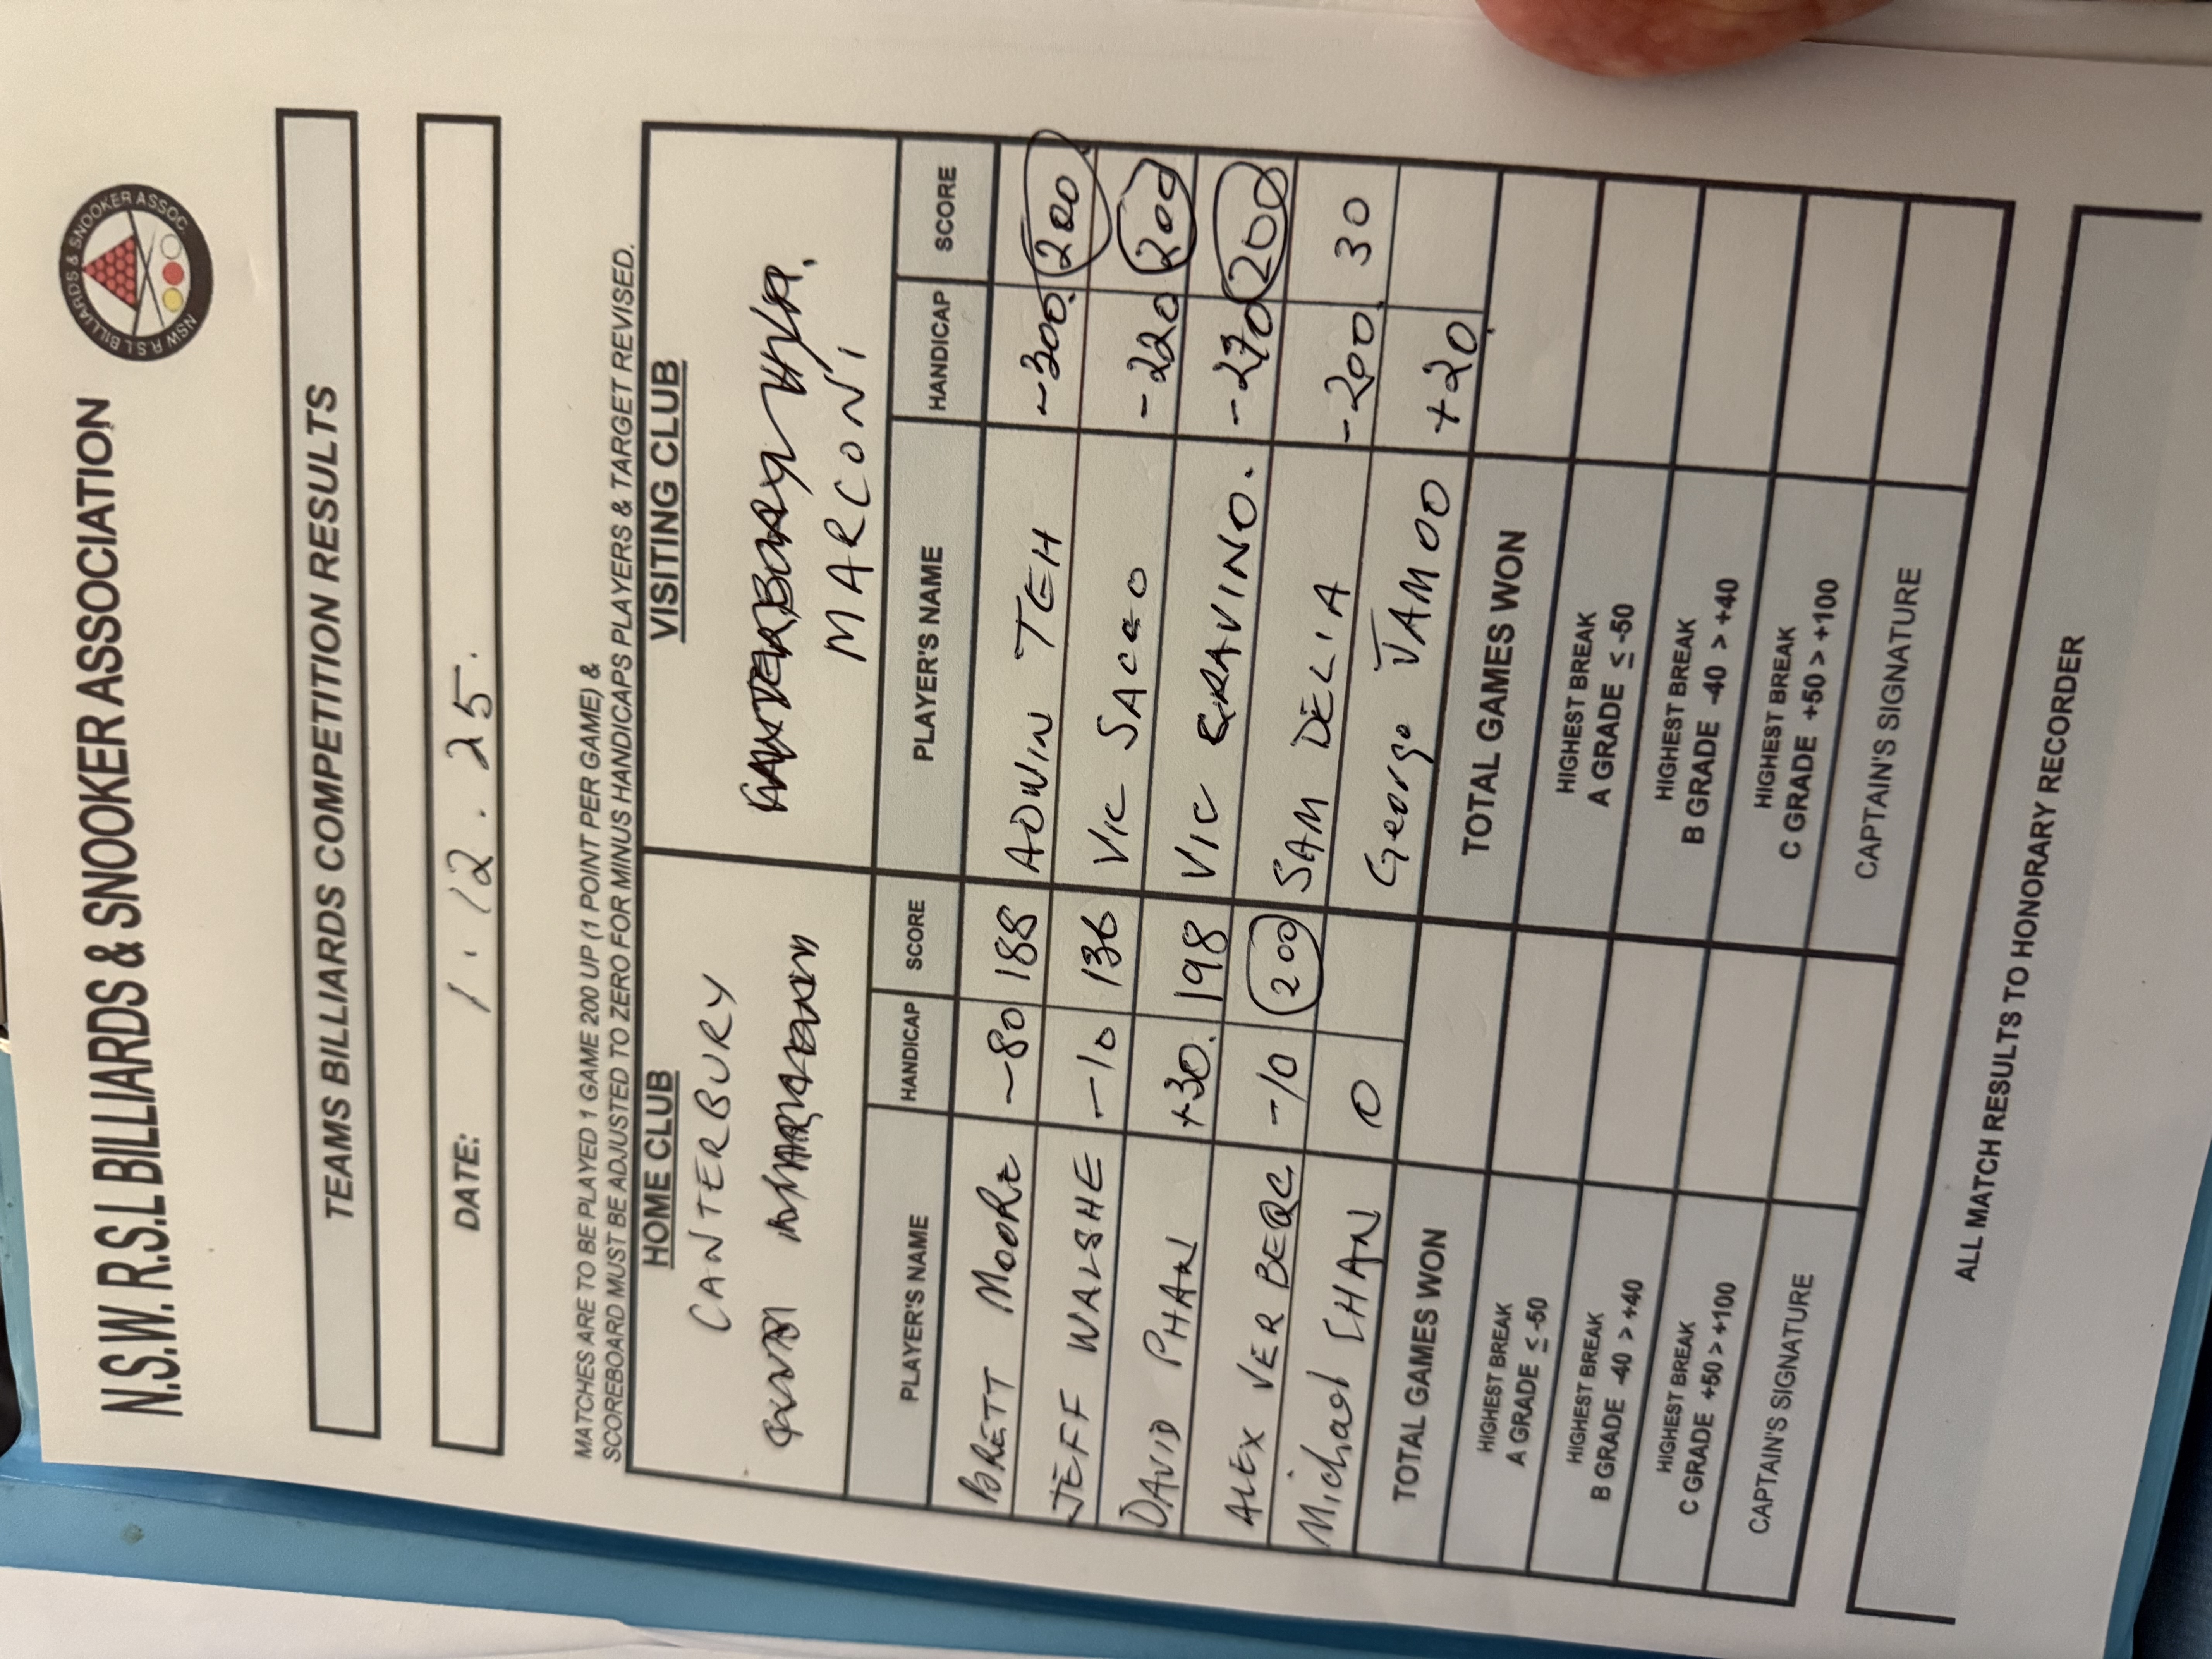 N.S.W. R.S.L BILLIARDS & SNOOKER ASSOCIATION
NSW R S L BILLIARDS & SNOOKER ASSOC.
TEAMS BILLIARDS COMPETITION RESULTS
DATE: 1.12.25.
MATCHES ARE TO BE PLAYED 1 GAME 200 UP (1 POINT PER GAME) &
SCOREBOARD MUST BE ADJUSTED TO ZERO FOR MINUS HANDICAPS PLAYERS & TARGET REVISED.
HOME CLUB VISITING CLUB
CANTERBURY
MARCONI
PLAYER'S NAME HANDICAP SCORE PLAYER'S NAME HANDICAP SCORE
BRETT MOORE -80 188 AOWIN TEH -300 200
JEFF WALSHE -10 136 VIC SACCO -220 200
DAVID PHAN +30. 198 VIC GRAVINO. -270 200
ALEX VER BERC -10 200 SAM DELIA -200 30
Michael CHAN 0 George JAMOO +20
TOTAL GAMES WON TOTAL GAMES WON
HIGHEST BREAK HIGHEST BREAK
A GRADE ≤ -50 A GRADE ≤ -50
HIGHEST BREAK HIGHEST BREAK
B GRADE -40 > +40 B GRADE -40 > +40
HIGHEST BREAK HIGHEST BREAK
C GRADE +50 > +100 C GRADE +50 > +100
CAPTAIN'S SIGNATURE CAPTAIN'S SIGNATURE
ALL MATCH RESULTS TO HONORARY RECORDER